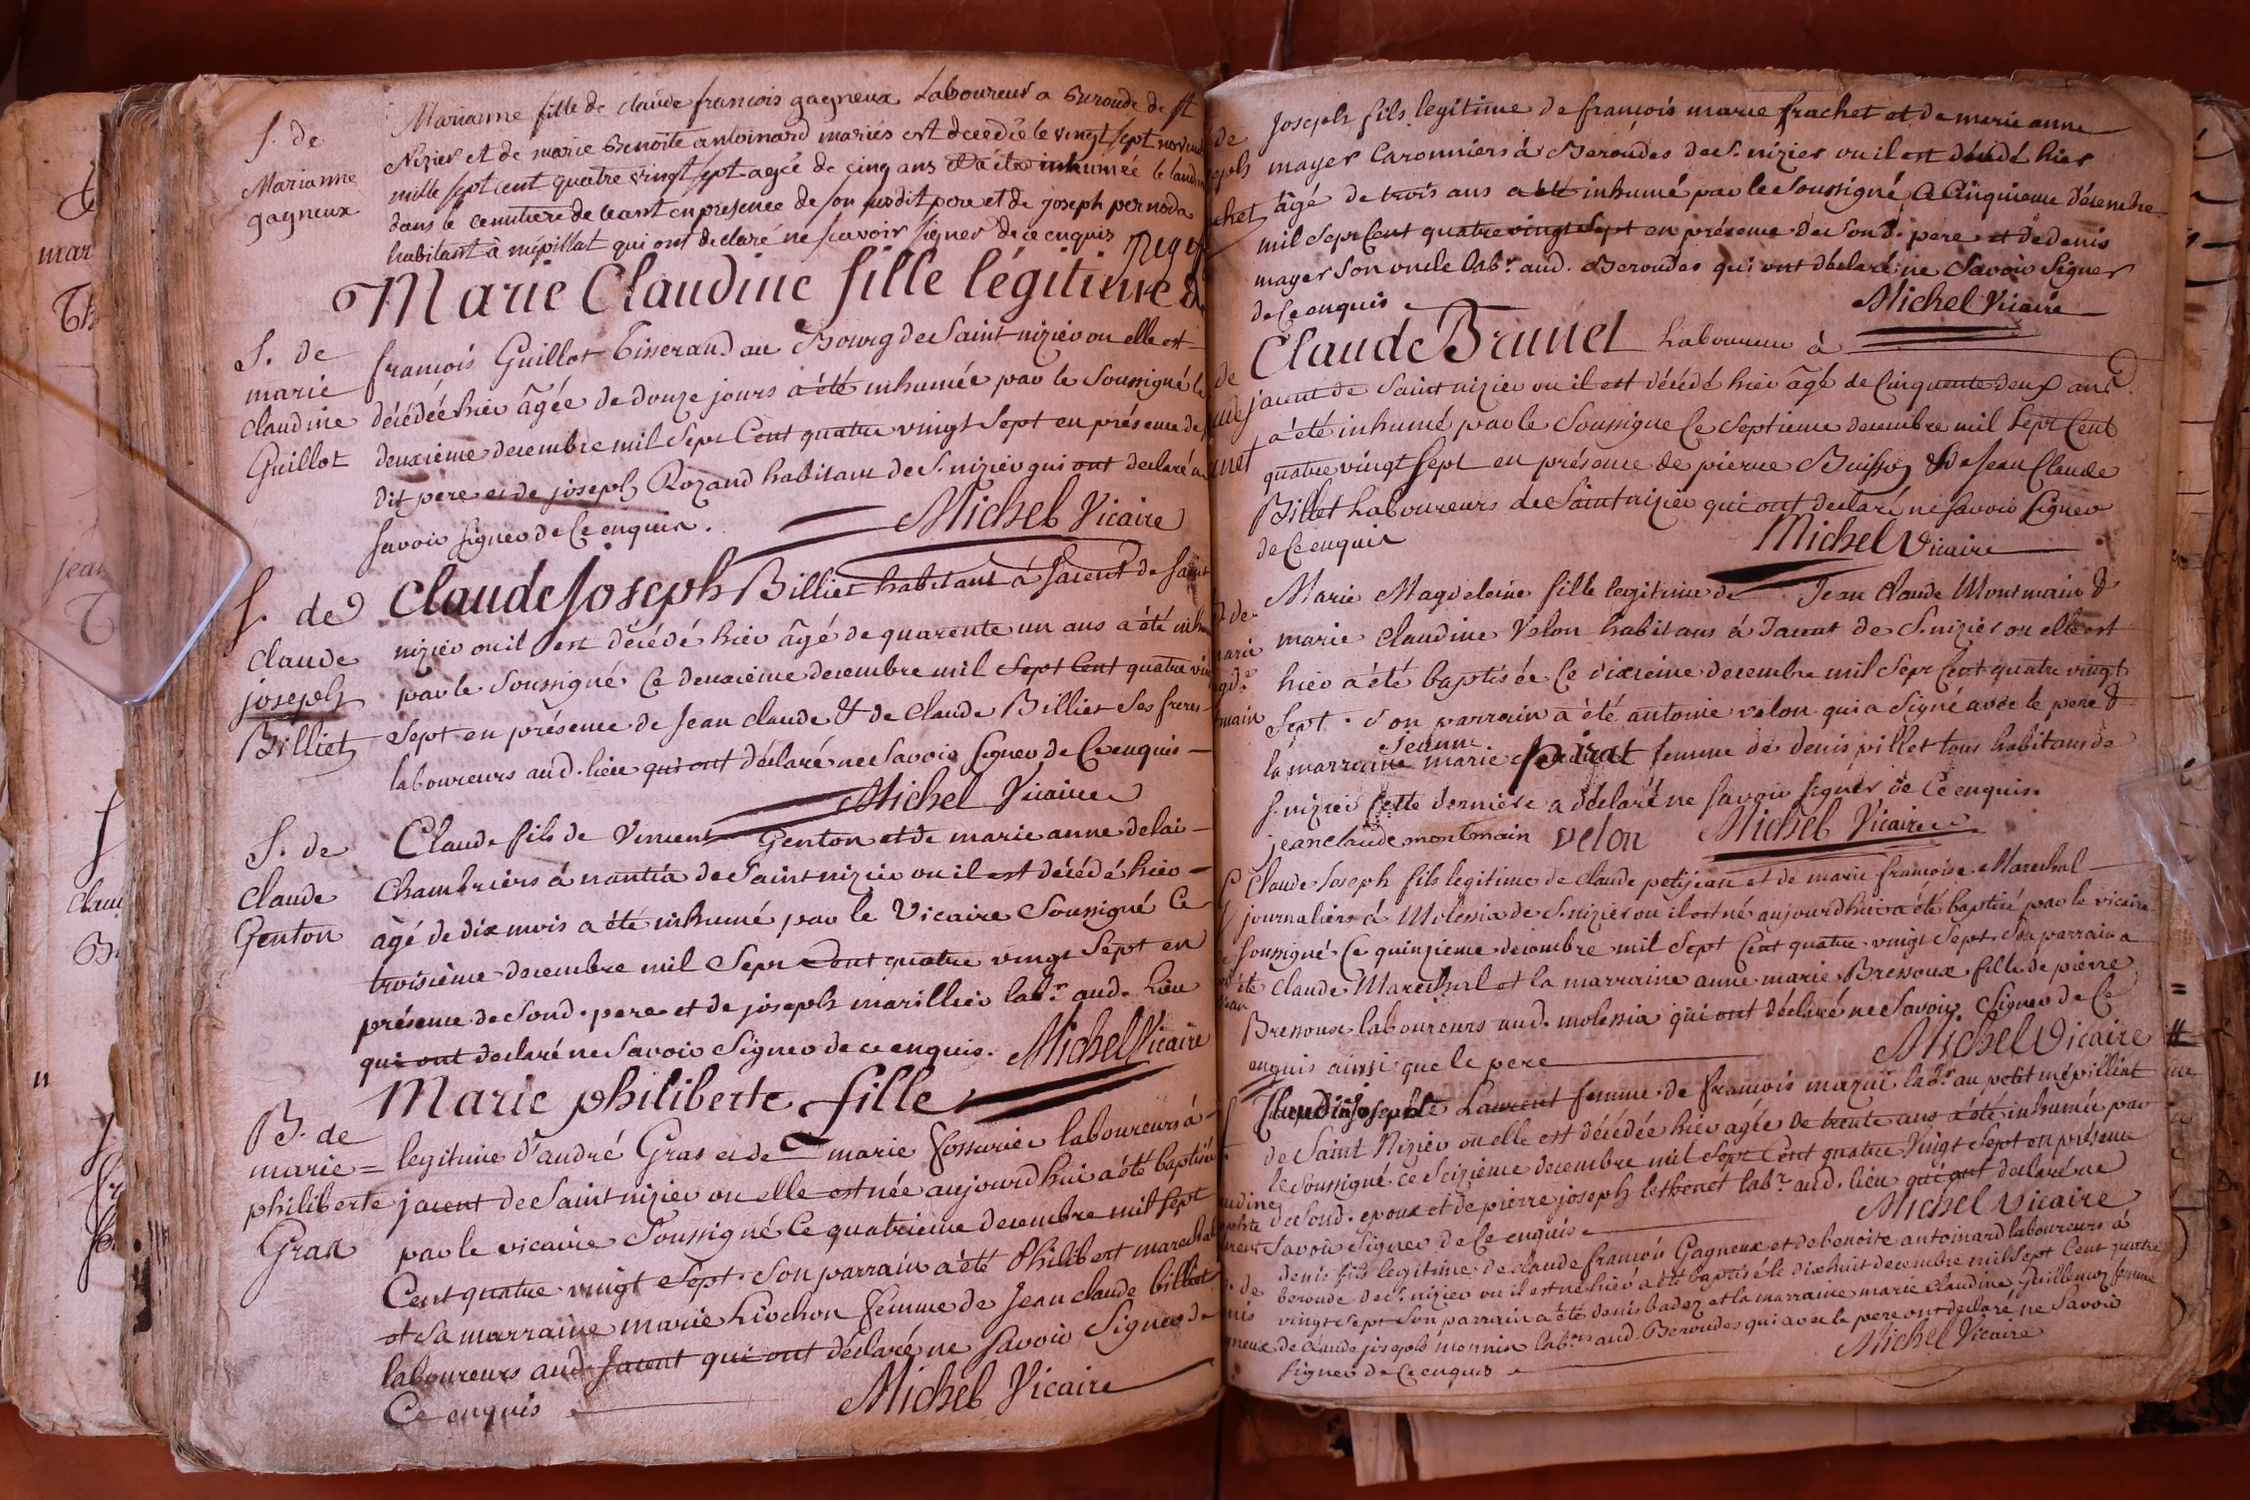 S. de
Marianne
gagneux
Marianne fille de claude francois gagneux Laboureur a Beroude de St
Nizier et de marie Benoite antoinard mariés est decedée le vingt sept novem
mille sept cent quatre vingt sept agée de cinq ans et a été inhumée le lendem
dans le cemitiere de ceant en presence de son susdit pere et de joseph pernoda
habitant à mépillat qui ont declaré ne scavoir signer de ce enquis
Marie Claudine fille légitime de
S. de
marie
claudine
Guillot
francois Guillot Tisserand au Bourg de Saint nizier ou elle est
décédée hier âgée de douze jours a été inhumée par le soussigné le
deuxième decembre mil sept Cent quatre vingt sept en présence de
dit pere et de joseph Rozand habitant de S. nizier qui ont declaré n
savoir signer de Ce enquis.
Michel Vicaire
S. de
Claude
joseph
Billiet
Claude Joseph Billiet habitant à jacent de saint
nizier ou il est décédé hier âgé de quarente un ans a été inhu
par le soussigné Ce deuxième decembre mil sept Cent quatre vin
sept en présence de Jean claude & de Claude Billiet ses freres
laboureurs aud. lieu qui ont déclaré ne savoir signer de Ce enquis
Michel Vicaire
S. de
Claude
Genton
Claude fils de Vincent Genton et de marie anne delai-
Chambriers à nantia de Saint nizier ou il est décédé hier
âgé de dix mois a été inhumé par le Vicaire Soussigné Ce
troisième decembre mil Sept Cent quatre vingt Sept en
présence de Sond. pere et de joseph marillier labr. aud. lieu
qui ont declaré ne Savoir Signer de ce enquis.
Michel Vicaire
B. de
marie =
philiberte
Gras
Marie philiberte fille
legitime d'andré Gras et de marie fossurier laboureurs à
jacent de Saint nizier ou elle est née aujourd'hui a été baptisée
par le vicaire Soussigné Ce quatrieme decembre mil sept
Cent quatre vingt Sept. Son parrain a été Philibert marechal
et sa marraine marie Liochon femme de Jean claude billiet
laboureurs aud. Jacent qui ont déclaré ne savoir Signer de
Ce enquis
Michel Vicaire
Joseph fils legitime de francois marie frachet et de marie anne
mayer Caronniers à Beroudes de S. nizier ou il est décédé hier
âgé de trois ans a été inhumé par le Soussigné Ce Cinquieme décembre
mil Sept Cent quatre vingt Sept en présence de Sond. pere et de denis
mayer Son oncle labr. aud. Beroudes qui ont déclaré ne Savoir Signer
de Ce enquis
Michel Vicaire
Claude Brunet Laboureur à
jacent de Saint nizier ou il est décédé hier âgé de Cinquente deux ans
a été inhumé par le Soussigné Ce Septieme decembre mil Sept Cent
quatre vingt sept en présence de pierre Buisson & de Jean Claude
Billet Laboureurs de Saint nizier qui ont declaré ne savoir signer
de Ce enquis
Michel Vicaire
Marie Magdeleine fille legitime de Jean Claude Montmain &
marie Claudine Velon habitans à Jacent de S. nizier ou elle est
hier a été baptisée Ce dixieme decembre mil Sept Cent quatre vingt
Sept. Son parrain a été antoine velon qui a Signé avec le pere &
jeanne
la marraine marie poirat femme de denis pillet tous habitans de
S. nizier Cette derniere a déclaré ne savoir signer de Ce enquis.
jean claude montmain velon
Michel Vicaire
Claude Joseph fils legitime de claude petijean et de marie francoise Marechal
journaliers à Molessia de S. nizier ou il est né aujourdhui a été baptisé par le vicaire
soussigné Ce quinzieme decembre mil Sept Cent quatre vingt Sept. Son parrain a
été Claude Marechal et la marraine anne marie Bressoux fille de pierre
Bressoux laboureurs aud. molessia qui ont déclaré ne Savoir Signer de Ce
enquis ainsi que le pere
Michel Vicaire
Claudine josephte Laurent femme de francois mazui labr. au petit mépilliat
de Saint Nizier ou elle est décédée hier agée de trente ans a été inhumée par
le Soussigné ce Seizieme decembre mil Sept Cent quatre Vingt Sept en présence
de Sond. epoux et de pierre joseph lethenet labr. aud. lieu qui ont declaré ne
Savoir Signer de Ce enquis
Michel Vicaire
denis fils legitime de claude francois Gagneux et de benoite antoinard laboureurs à
beroude de S. nizier ou il est né hier a été baptisé le dix huit decembre mil Sept Cent quatre
vingt Sept Son parrain a été denis badez et la marraine marie Claudine Guillemoz femme
de claude joseph monnin labrs. aud. Beroudes qui avec le pere ont declaré ne Savoir
Signer de Ce enquis
Michel Vicaire